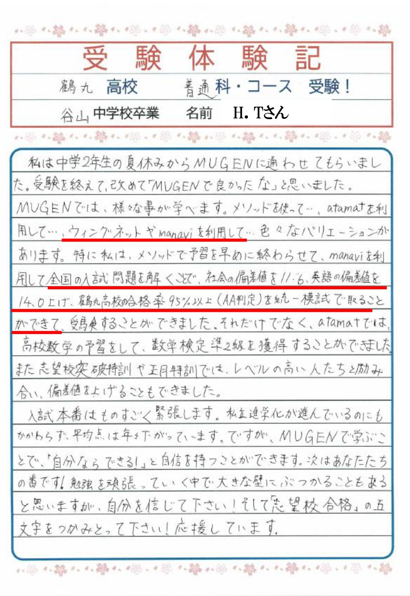 受験体験記
鶴丸 高校 普通 科・コース 受験！
谷山 中学校卒業 名前 H.Tさん
私は中学2年生の夏休みからMUGENに通わせてもらいまし
た。受験を終えて、改めて「MUGENで良かったな」と思いました。
MUGENでは、様々な事が学べます。メソッドを使って…、atama+を利
用して…、ウィングネットやmanaviを利用して…色々なバリエーションが
あります。特に私は、メソッドで予習を早めに終わらせて、manaviを利
用して全国の入試問題を解くことで、社会の偏差値を11.6、英語の偏差値を
14.0上げ、鶴丸高校の合格率95%以上(AA判定)を統一模試で取ること
ができて、受験することができました。それだけでなく、atama+では、
高校数学の予習をして、数学検定準2級を獲得することができました
また志望校突破特訓や正月特訓では、レベルの高い人たちと励み
合い、偏差値を上げることもできました。
入試本番はものすごく緊張します。私立進学化が進んでいるのにも
かかわらず、平均点は年々下がっています。ですが、MUGENで学ぶこ
とで、「自分ならできる!」と自信を持つことができます。次はあなたたち
の番です!勉強を頑張っていく中で大きな壁にぶつかることもある
と思いますが、自分を信じて下さい!そして「志望校合格」の五
文字をつかみとって下さい!応援しています。